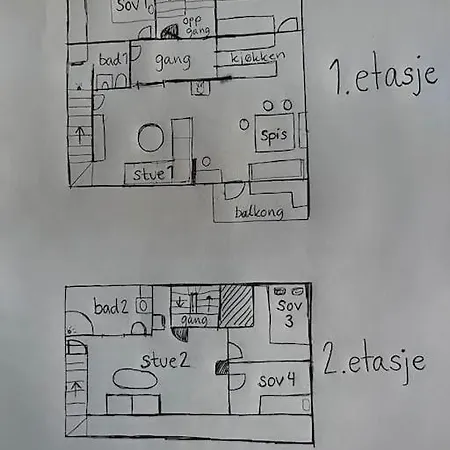 sov 1
opp
gang
bad 1
gang
kjøkken
1. etasje
spis
stue 1
balkong
bad 2
gang
sov
3
stue 2
2. etasje
sov 4